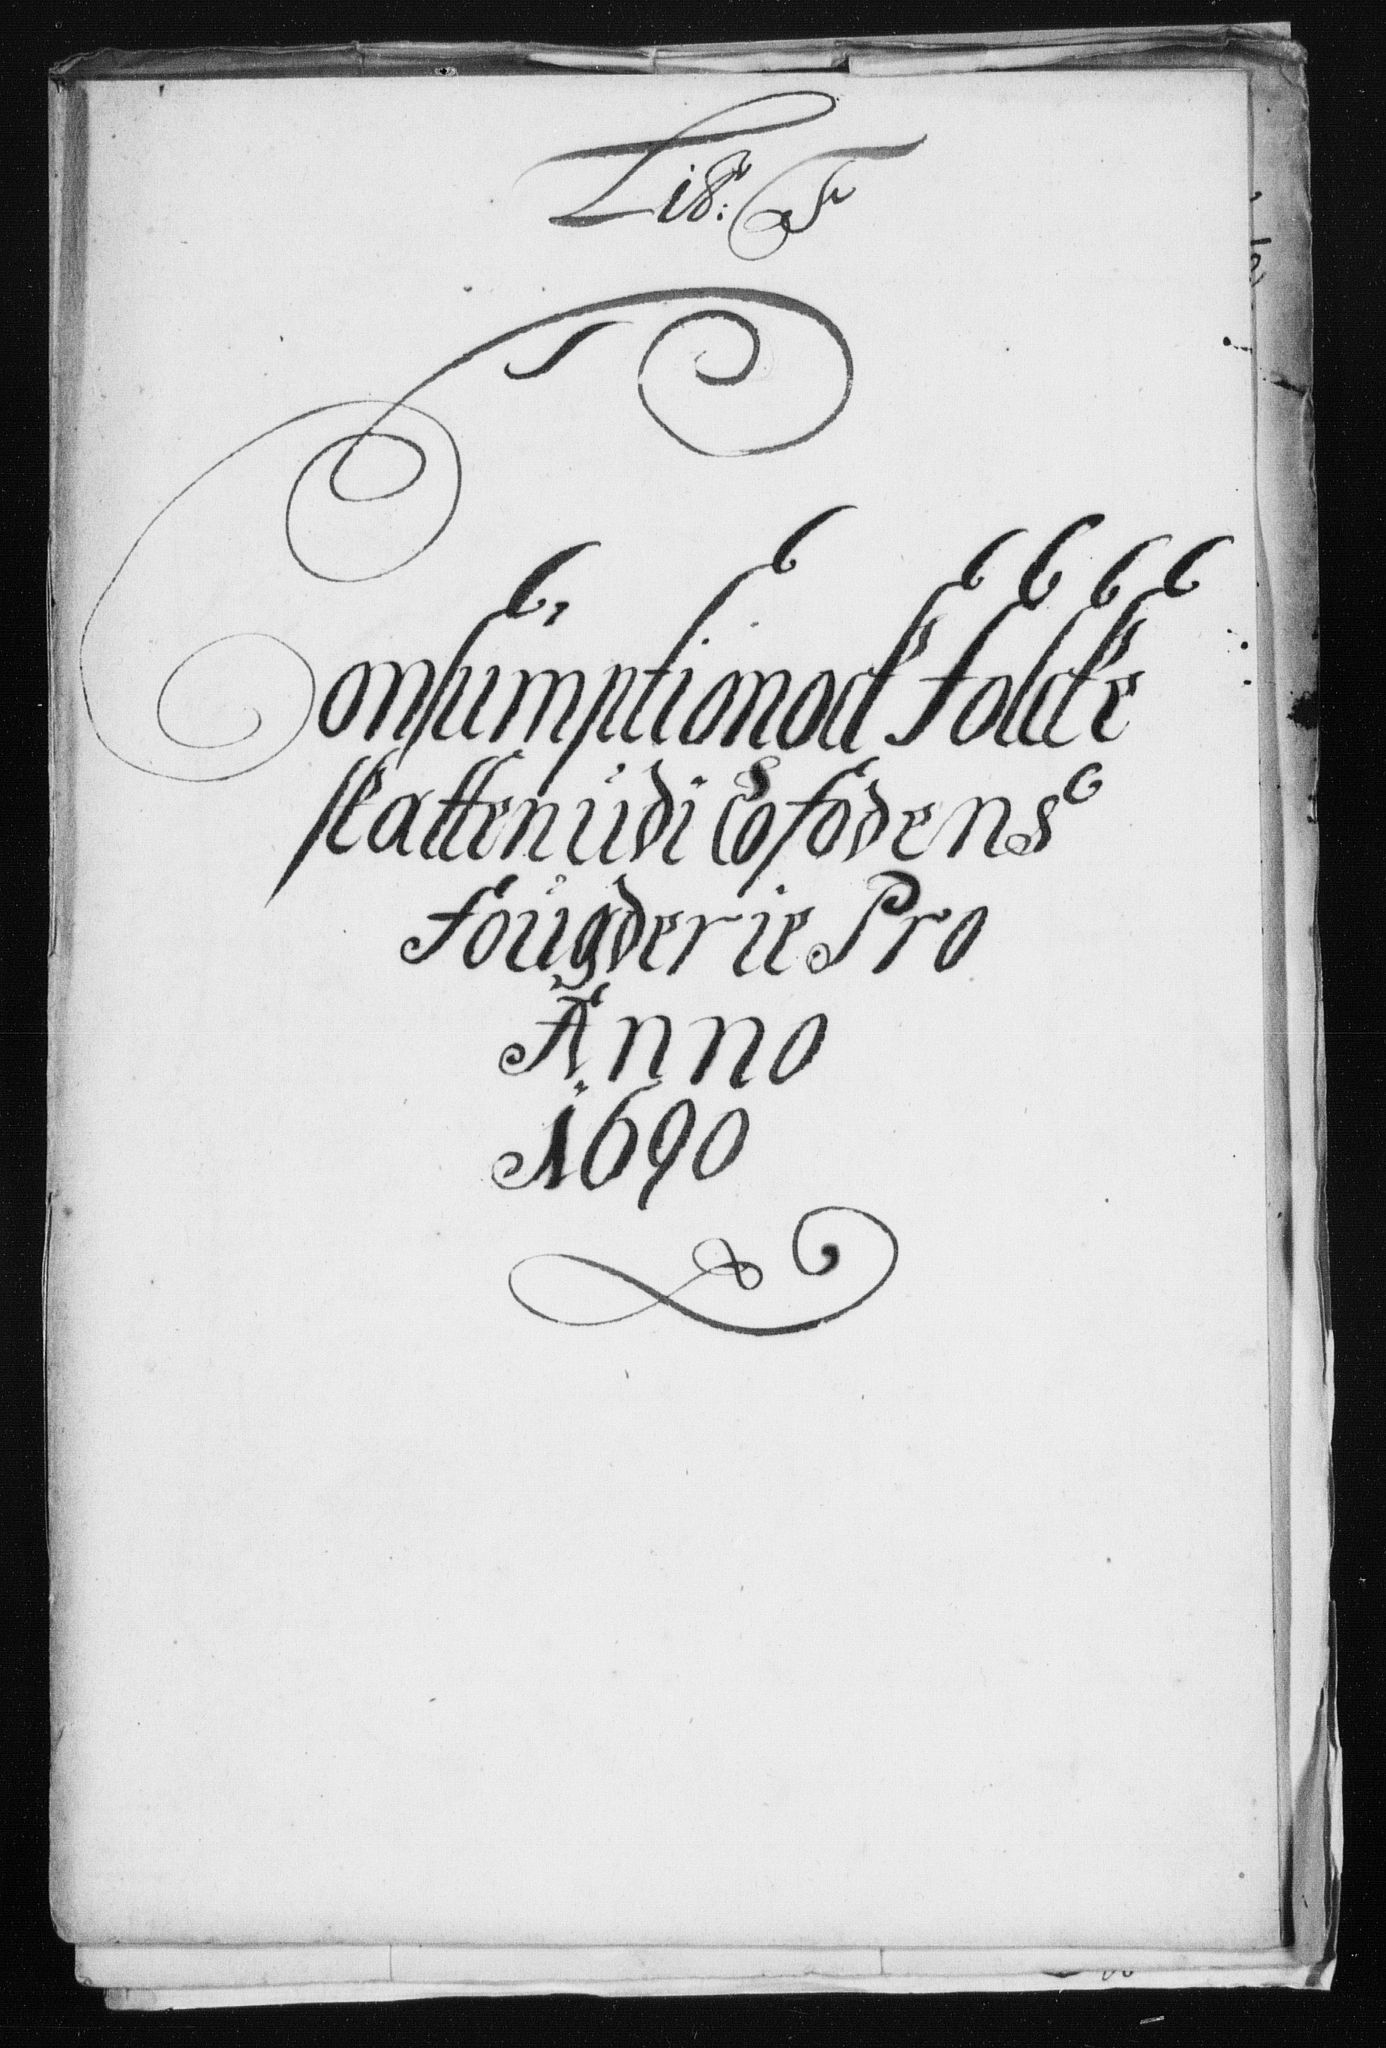 Lib: F
Consumption och Folcke
skatten udi Lofodens
Fougderie Pro
Anno
1690